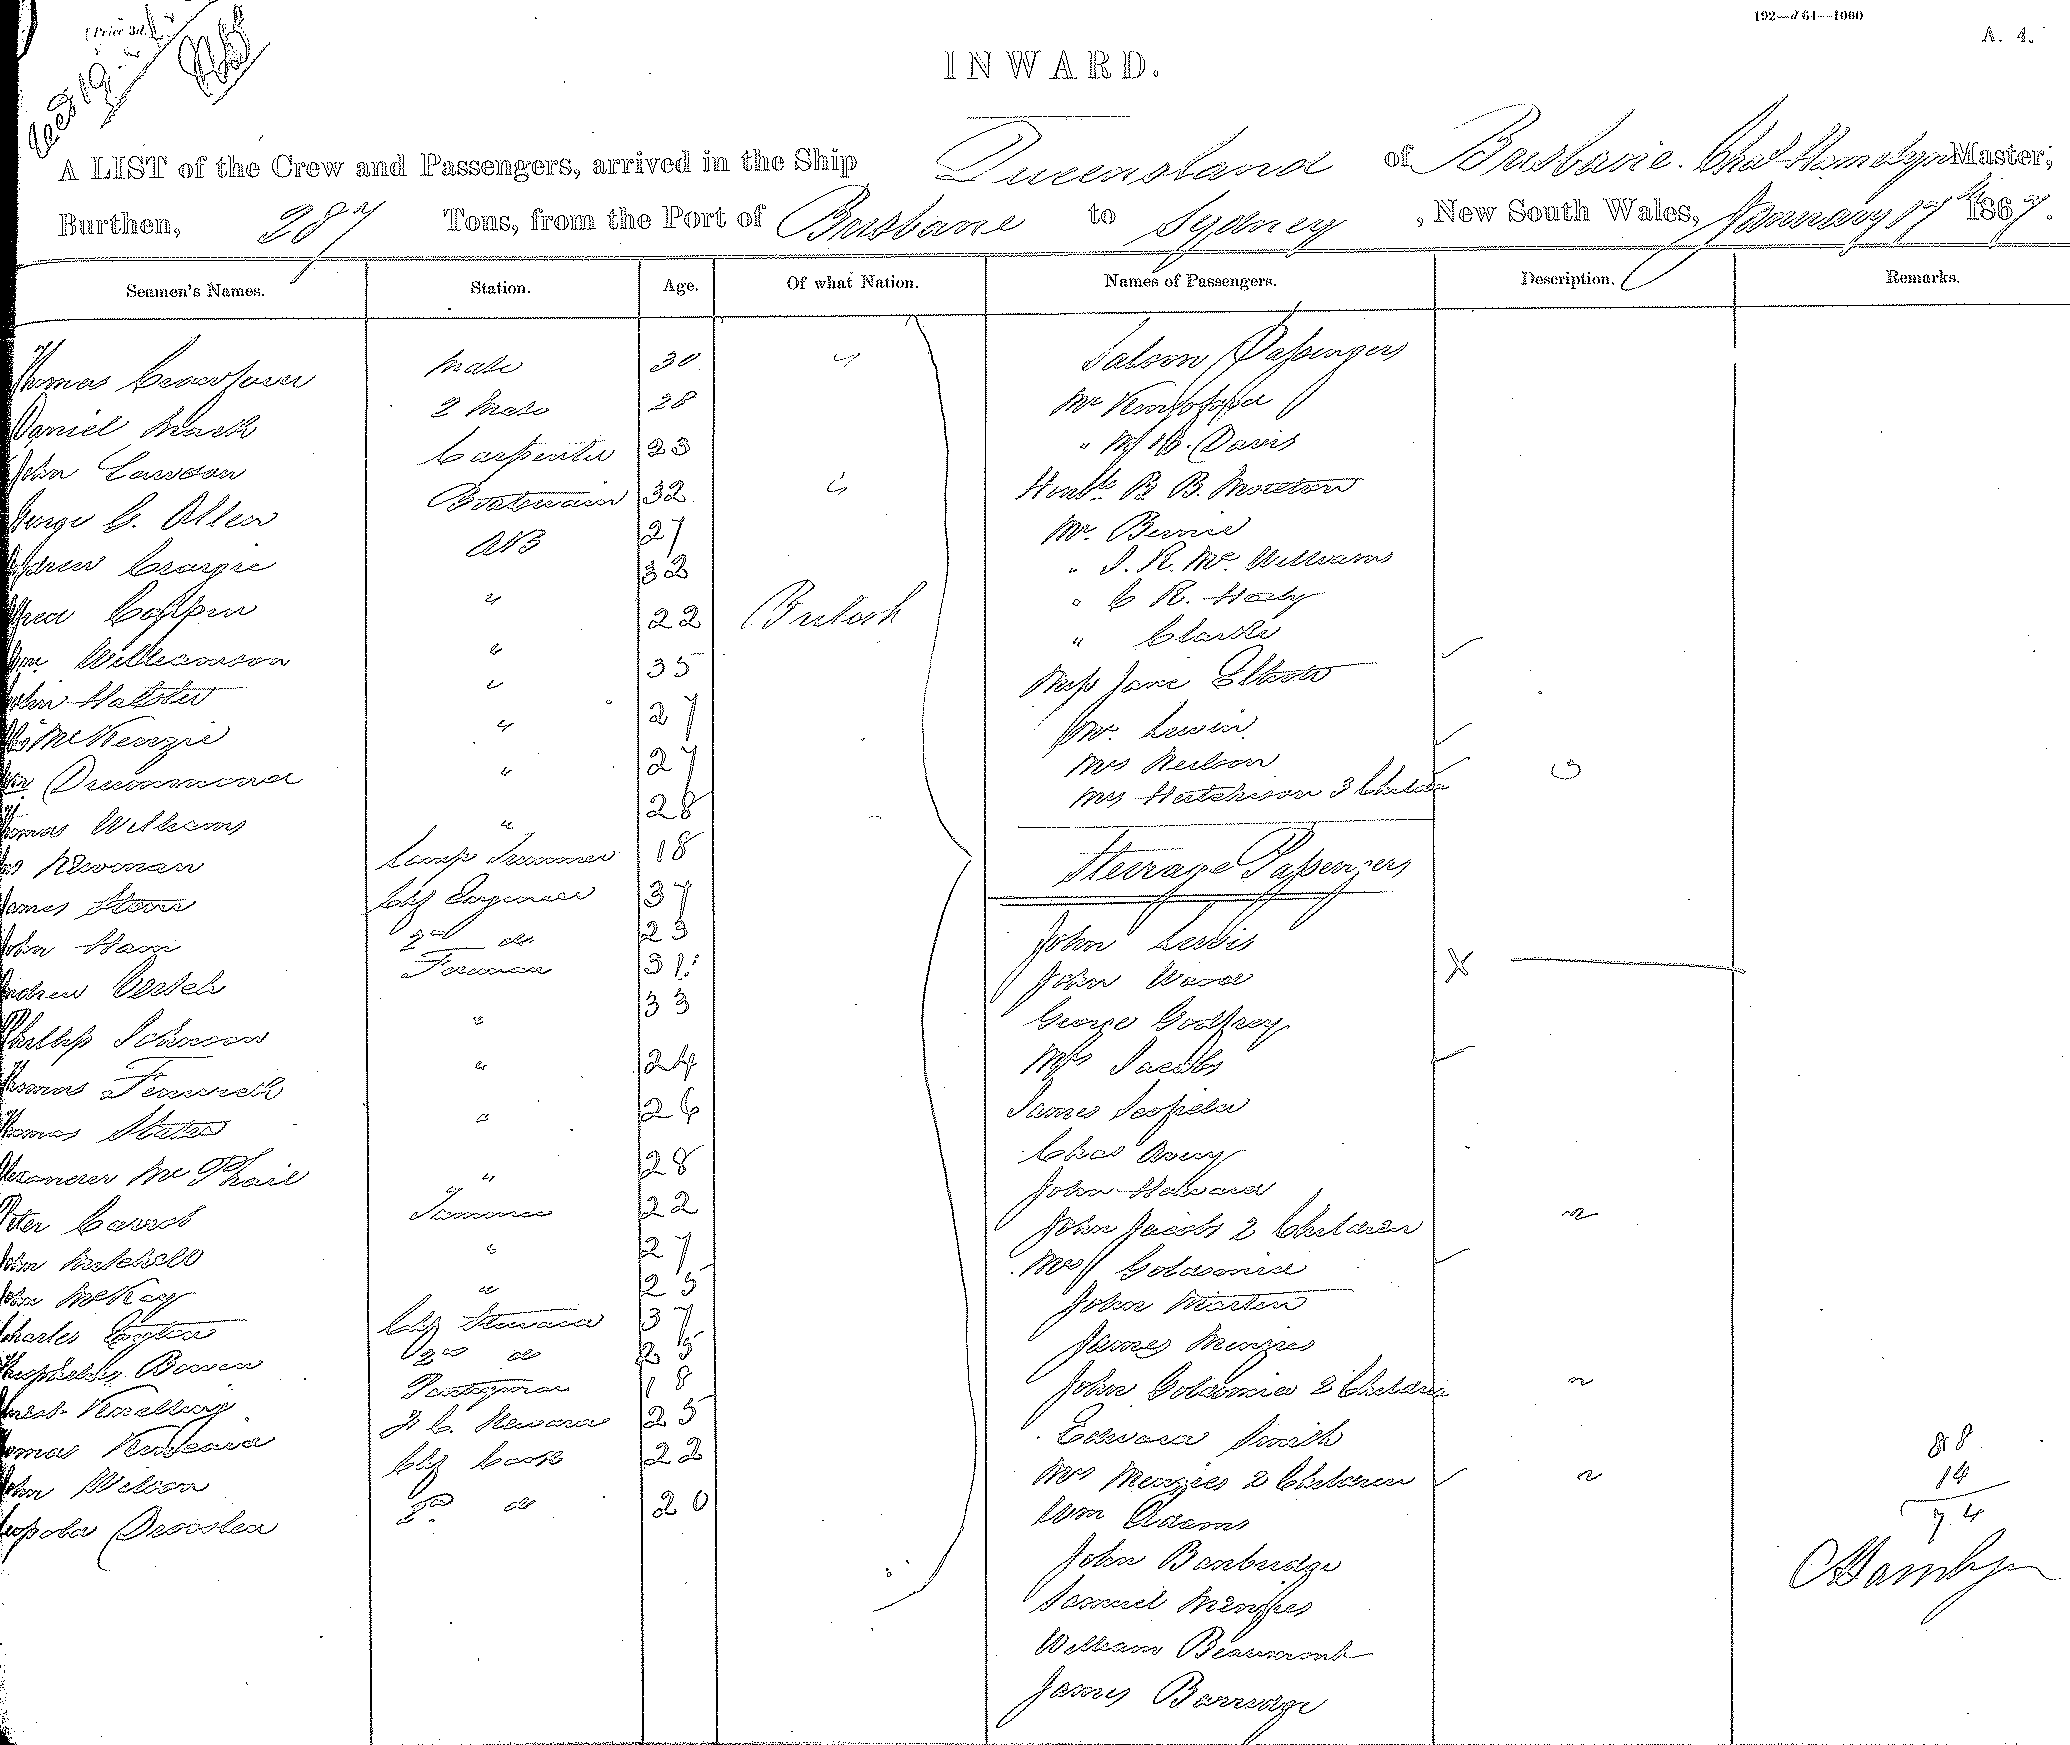 (Price 3d.)
192—d 64—1000
A. 4.
INWARD.
A LIST of the Crew and Passengers, arrived in the Ship Queensland of Brisbane. Chas Hamlyn Master,
Burthen, 287 Tons, from the Port of Brisbane to Sydney, New South Wales, January 17th 1867.
Seamen's Names. Station. Age. Of what Nation. Names of Passengers. Description. Remarks.
Thomas Mate 30
Daniel Mack 2 Mate 28
John Lawson Carpenter 23
George C. Allen Boatswain 32
Andrew Craigie AB 27
Coppin " 32
Wm Williamson " 22 British
John Halster " 35
McKenzie " 27
Wm Drummond " 27
Thomas Williams " 28
Newman Lamp Trimmer 18
James Stone Chf Engineer 37
John Ham 2nd do 23
Andrew Fireman 31
Phillip Johnson " 33
Thomas Fenwick " 24
Thomas Slater " 26
Alexander McPhail " 28
Peter Carrol Trimmer 22
John Mitchell " 27
John McKay " 25
Charles Chf Steward 37
Bowen 2nd do 25
Pantryman 18
Thomas F. C. Steward 25
John Wilson Chf Cook 22
Leopold 2nd do 20
Saloon Passengers
Mr
" M. H. Davis
Honble B. B. Moreton
Mr. Bernie
" J. R. Mc Williams
" C R. Haly
" Clarke
Miss Jane Elliott
Mr. Lewin
Mrs Neilson
Mrs Hutchison 3 Children
Steerage Passengers
John Lewis
John Wood
George Godfrey
Mrs Jacobs
James
Chas Avery
John Howard
John Jacobs 2 Children
Mrs Goldsmid
John Martin
James Menzies
John Goldsmid 2 Children
Edward Smith
Mrs Menzies 2 Children
Wm Adams
John Banbridge
Samuel Menzies
William Beaumont
James Barridge
88
14
74
CHamlyn